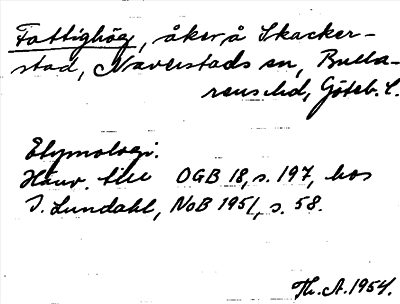 Fattighög, åker å Skacker-
stad, Naverstads sn, Bulla-
rens hd, Göteb. l.
Etymologi.
Hänv. till OGB 18, s. 197, hos
I. Lundahl, NoB 1951, s. 58.
Th. A. 1954.